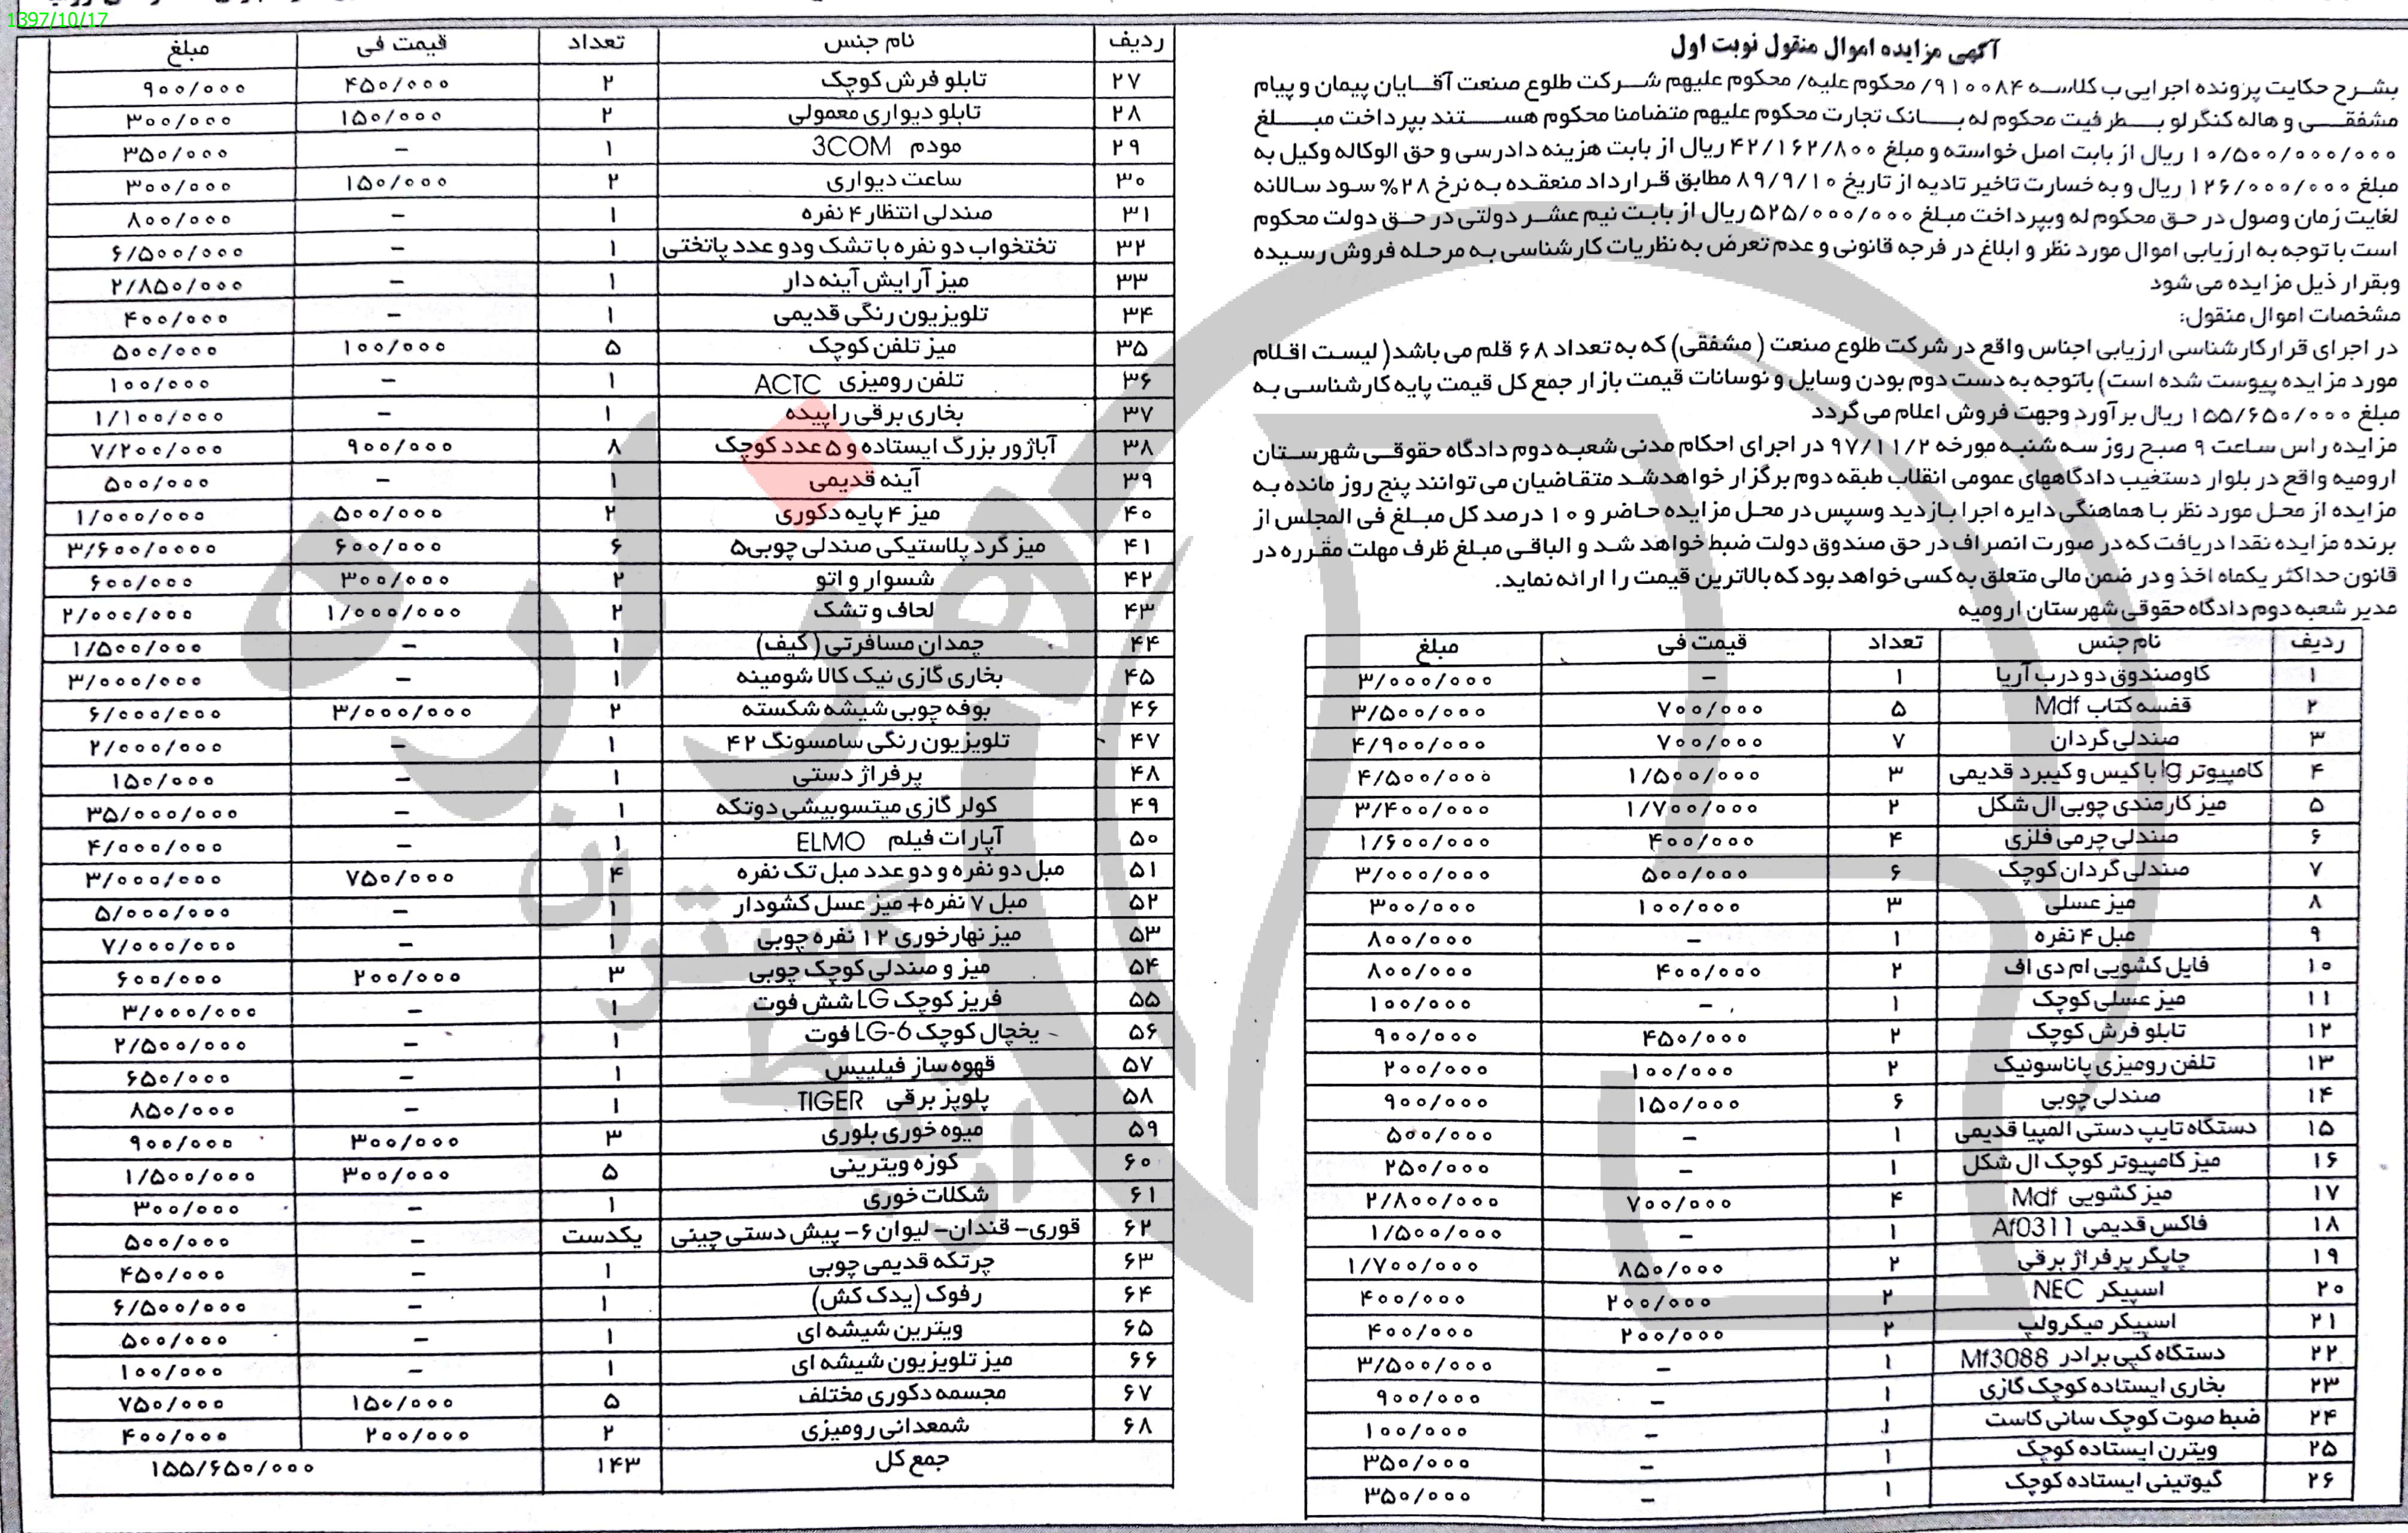 1397/10/17
آگهی مزایده اموال منقول نوبت اول
بشرح حکایت پرونده اجرایی ب کلاسه ۹۱۰۰۸۴/ محکوم علیه/ محکوم علیهم شرکت طلوع صنعت آقایان پیمان و پیام
مشفقی و هاله کنگرلو بطرفیت محکوم له بانک تجارت محکوم علیهم متضامنا محکوم هستند بپرداخت مبلغ
۱۰/۵۰۰/۰۰۰/۰۰۰ ریال از بابت اصل خواسته و مبلغ ۴۲/۱۶۲/۸۰۰ ریال از بابت هزینه دادرسی و حق الوکاله وکیل به
مبلغ ۱۲۶/۰۰۰/۰۰۰ ریال و به خسارت تاخیر تادیه از تاریخ ۸۹/۹/۱۰ مطابق قرارداد منعقده به نرخ ۲۸% سود سالانه
لغایت زمان وصول در حق محکوم له وبپرداخت مبلغ ۵۲۵/۰۰۰/۰۰۰ ریال از بابت نیم عشر دولتی در حق دولت محکوم
است با توجه به ارزیابی اموال مورد نظر و ابلاغ در فرجه قانونی و عدم تعرض به نظریات کارشناسی به مرحله فروش رسیده
وبقرار ذیل مزایده می شود
مشخصات اموال منقول:
در اجرای قرارکارشناسی ارزیابی اجناس واقع در شرکت طلوع صنعت ( مشفقی) که به تعداد ۶۸ قلم می باشد( لیست اقلام
مورد مزایده پیوست شده است) باتوجه به دست دوم بودن وسایل و نوسانات قیمت بازار جمع کل قیمت پایه کارشناسی به
مبلغ ۱۵۵/۶۵۰/۰۰۰ ریال برآورد وجهت فروش اعلام می گردد
مزایده راس ساعت ۹ صبح روز سه شنبه مورخه ۹۷/۱۱/۲ در اجرای احکام مدنی شعبه دوم دادگاه حقوقی شهرستان
ارومیه واقع در بلوار دستغیب دادگاههای عمومی انقلاب طبقه دوم برگزار خواهدشد متقاضیان می توانند پنج روز مانده به
مزایده از محل مورد نظر با هماهنگی دایره اجرا بازدید وسپس در محل مزایده حاضر و ۱۰ درصد کل مبلغ فی المجلس از
برنده مزایده نقدا دریافت که در صورت انصراف در حق صندوق دولت ضبط خواهد شد و الباقی مبلغ ظرف مهلت مقرره در
قانون حداکثر یکماه اخذ و در ضمن مالی متعلق به کسی خواهد بود که بالاترین قیمت را ارائه نماید.
مدیر شعبه دوم دادگاه حقوقی شهرستان ارومیه
ردیف نام جنس تعداد قیمت فی مبلغ
۱ کاوصندوق دو درب آریا ۱ – ۳/۰۰۰/۰۰۰
۲ قفسه کتاب Mdf ۵ ۷۰۰/۰۰۰ ۳/۵۰۰/۰۰۰
۳ صندلی گردان ۷ ۷۰۰/۰۰۰ ۴/۹۰۰/۰۰۰
۴ کامپیوتر lg با کیس و کیبرد قدیمی ۳ ۱/۵۰۰/۰۰۰ ۴/۵۰۰/۰۰۰
۵ میز کارمندی چوبی ال شکل ۲ ۱/۷۰۰/۰۰۰ ۳/۴۰۰/۰۰۰
۶ صندلی چرمی فلزی ۴ ۴۰۰/۰۰۰ ۱/۶۰۰/۰۰۰
۷ صندلی گردان کوچک ۶ ۵۰۰/۰۰۰ ۳/۰۰۰/۰۰۰
۸ میز عسلی ۳ ۱۰۰/۰۰۰ ۳۰۰/۰۰۰
۹ مبل ۴ نفره ۱ – ۸۰۰/۰۰۰
۱۰ فایل کشویی ام دی اف ۲ ۴۰۰/۰۰۰ ۸۰۰/۰۰۰
۱۱ میز عسلی کوچک ۱ – ۱۰۰/۰۰۰
۱۲ تابلو فرش کوچک ۲ ۴۵۰/۰۰۰ ۹۰۰/۰۰۰
۱۳ تلفن رومیزی پاناسونیک ۲ ۱۰۰/۰۰۰ ۲۰۰/۰۰۰
۱۴ صندلی چوبی ۶ ۱۵۰/۰۰۰ ۹۰۰/۰۰۰
۱۵ دستگاه تایپ دستی المپیا قدیمی ۱ – ۵۰۰/۰۰۰
۱۶ میز کامپیوتر کوچک ال شکل ۱ – ۲۵۰/۰۰۰
۱۷ میز کشویی Mdf ۴ ۷۰۰/۰۰۰ ۲/۸۰۰/۰۰۰
۱۸ فاکس قدیمی Af0311 ۱ – ۱/۵۰۰/۰۰۰
۱۹ چاپگر پرفراژ برقی ۲ ۸۵۰/۰۰۰ ۱/۷۰۰/۰۰۰
۲۰ اسپیکر NEC ۲ ۲۰۰/۰۰۰ ۴۰۰/۰۰۰
۲۱ اسپیکر میکرولپ ۲ ۲۰۰/۰۰۰ ۴۰۰/۰۰۰
۲۲ دستگاه کپی برادر Mf3088 ۱ – ۳/۵۰۰/۰۰۰
۲۳ بخاری ایستاده کوچک گازی ۱ – ۹۰۰/۰۰۰
۲۴ ضبط صوت کوچک سانی کاست ۱ – ۱۰۰/۰۰۰
۲۵ ویترن ایستاده کوچک ۱ – ۳۵۰/۰۰۰
۲۶ گیوتینی ایستاده کوچک ۱ – ۳۵۰/۰۰۰
ردیف نام جنس تعداد قیمت فی مبلغ
۲۷ تابلو فرش کوچک ۲ ۴۵۰/۰۰۰ ۹۰۰/۰۰۰
۲۸ تابلو دیواری معمولی ۲ ۱۵۰/۰۰۰ ۳۰۰/۰۰۰
۲۹ مودم 3COM ۱ – ۳۵۰/۰۰۰
۳۰ ساعت دیواری ۲ ۱۵۰/۰۰۰ ۳۰۰/۰۰۰
۳۱ صندلی انتظار ۴ نفره ۱ – ۸۰۰/۰۰۰
۳۲ تختخواب دو نفره با تشک ودو عدد پاتختی ۱ – ۶/۵۰۰/۰۰۰
۳۳ میز آرایش آینه دار ۱ – ۲/۸۵۰/۰۰۰
۳۴ تلویزیون رنگی قدیمی ۱ – ۴۰۰/۰۰۰
۳۵ میز تلفن کوچک ۵ ۱۰۰/۰۰۰ ۵۰۰/۰۰۰
۳۶ تلفن رومیزی ACTC ۱ – ۱۰۰/۰۰۰
۳۷ بخاری برقی راپیده ۱ – ۱/۱۰۰/۰۰۰
۳۸ آباژور بزرگ ایستاده و ۵ عدد کوچک ۸ ۹۰۰/۰۰۰ ۷/۲۰۰/۰۰۰
۳۹ آینه قدیمی ۱ – ۵۰۰/۰۰۰
۴۰ میز ۴ پایه دکوری ۲ ۵۰۰/۰۰۰ ۱/۰۰۰/۰۰۰
۴۱ میز گرد پلاستیکی صندلی چوبی۵ ۶ ۶۰۰/۰۰۰ ۳/۶۰۰/۰۰۰۰
۴۲ شسوار و اتو ۲ ۳۰۰/۰۰۰ ۶۰۰/۰۰۰
۴۳ لحاف و تشک ۲ ۱/۰۰۰/۰۰۰ ۲/۰۰۰/۰۰۰
۴۴ چمدان مسافرتی ( کیف) ۱ – ۱/۵۰۰/۰۰۰
۴۵ بخاری گازی نیک کالا شومینه ۱ – ۳/۰۰۰/۰۰۰
۴۶ بوفه چوبی شیشه شکسته ۲ ۳/۰۰۰/۰۰۰ ۶/۰۰۰/۰۰۰
۴۷ تلویزیون رنگی سامسونگ ۴۲ ۱ – ۲/۰۰۰/۰۰۰
۴۸ پرفراژ دستی ۱ – ۱۵۰/۰۰۰
۴۹ کولر گازی میتسوبیشی دوتکه ۱ – ۳۵/۰۰۰/۰۰۰
۵۰ آپارات فیلم ELMO ۱ – ۴/۰۰۰/۰۰۰
۵۱ مبل دو نفره و دو عدد مبل تک نفره ۴ ۷۵۰/۰۰۰ ۳/۰۰۰/۰۰۰
۵۲ مبل ۷ نفره+ میز عسل کشودار ۱ – ۵/۰۰۰/۰۰۰
۵۳ میز نهارخوری ۱۲ نفره چوبی ۱ – ۷/۰۰۰/۰۰۰
۵۴ میز و صندلی کوچک چوبی ۳ ۲۰۰/۰۰۰ ۶۰۰/۰۰۰
۵۵ فریز کوچک LG شش فوت ۱ – ۳/۰۰۰/۰۰۰
۵۶ یخچال کوچک LG-6 فوت ۱ – ۲/۵۰۰/۰۰۰
۵۷ قهوه ساز فیلیپس ۱ – ۶۵۰/۰۰۰
۵۸ پلوپز برقی TIGER ۱ – ۸۵۰/۰۰۰
۵۹ میوه خوری بلوری ۳ ۳۰۰/۰۰۰ ۹۰۰/۰۰۰
۶۰ کوزه ویترینی ۵ ۳۰۰/۰۰۰ ۱/۵۰۰/۰۰۰
۶۱ شکلات خوری ۱ – ۳۰۰/۰۰۰
۶۲ قوری- قندان- لیوان ۶- پیش دستی چینی یکدست – ۵۰۰/۰۰۰
۶۳ چرتکه قدیمی چوبی ۱ – ۴۵۰/۰۰۰
۶۴ رفوک (یدک کش) ۱ – ۶/۵۰۰/۰۰۰
۶۵ ویترین شیشه ای ۱ – ۵۰۰/۰۰۰
۶۶ میز تلویزیون شیشه ای ۱ – ۱۰۰/۰۰۰
۶۷ مجسمه دکوری مختلف ۵ ۱۵۰/۰۰۰ ۷۵۰/۰۰۰
۶۸ شمعدانی رومیزی ۲ ۲۰۰/۰۰۰ ۴۰۰/۰۰۰
جمع کل ۱۴۳ ۱۵۵/۶۵۰/۰۰۰